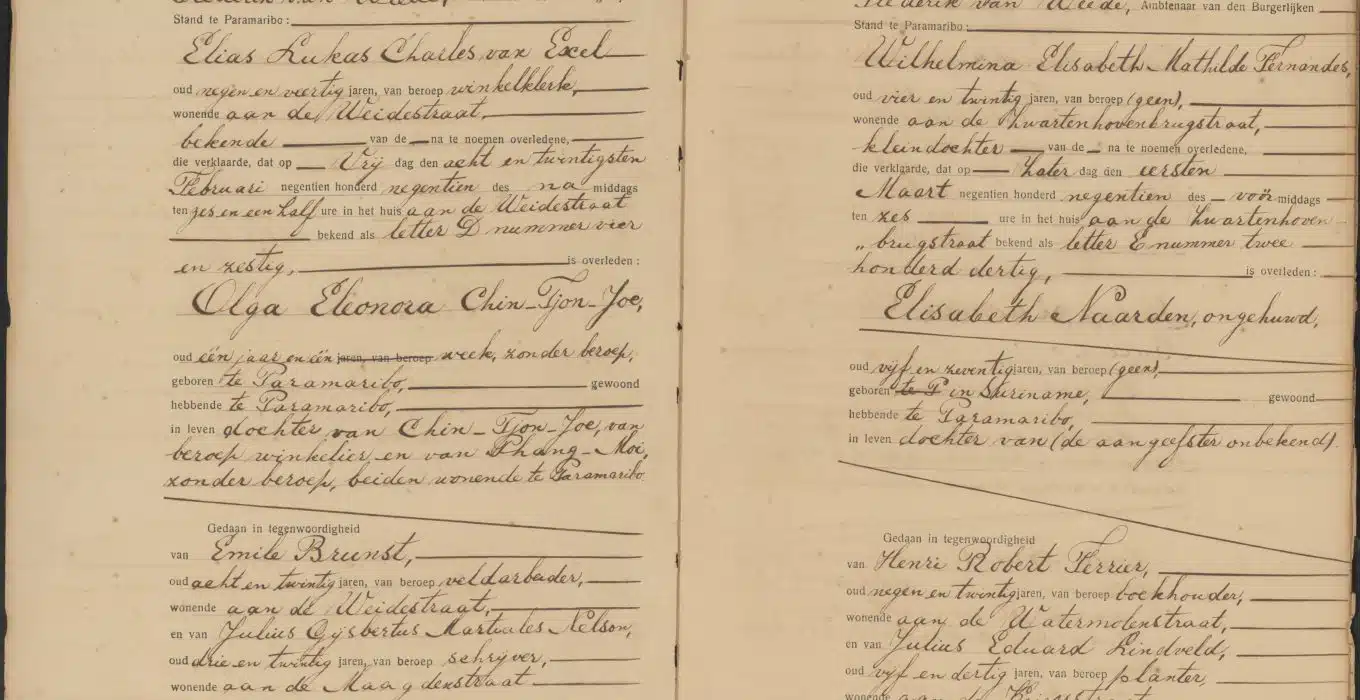 Stand te Paramaribo:
Elias Lukas Charles van Exel
oud negen en veertig jaren, van beroep winkelklerk,
wonende aan de Weidestraat,
bekende van de na te noemen overledene,
die verklaarde, dat op Vrij dag den acht en twintigsten
Februari negentien honderd negentien des na middags
ten zes en een half ure in het huis aan de Weidestraat
bekend als letter D nummer vier
en zestig, is overleden:
Olga Eleonora Chin-Tjon-Joe,
oud één jaar en één jaren, van beroep week, zonder beroep,
geboren te Paramaribo, gewoond
hebbende te Paramaribo,
in leven dochter van Chin-Tjon-Joe, van
beroep winkelier en van Phang-Moi,
zonder beroep, beiden wonende te Paramaribo
Gedaan in tegenwoordigheid
van Emile Brunst,
oud acht en twintig jaren, van beroep veldarbeider,
wonende aan de Weidestraat,
en van Julius Gijsbertus Martuales Nelson,
oud drie en twintig jaren, van beroep schrijver,
wonende aan de Maagdenstraat
Frederik van Weede, Ambtenaar van den Burgerlijken
Stand te Paramaribo:
Wilhelmina Elisabeth Mathilde Fernandes,
oud vier en twintig jaren, van beroep (geen),
wonende aan de Zwartenhovenbrugstraat,
kleindochter van de na te noemen overledene,
die verklaarde, dat op Zater dag den eersten
Maart negentien honderd negentien des voor middags
ten zes ure in het huis aan de Zwartenhoven
„ brugstraat bekend als letter E nummer twee
honderd dertig, is overleden:
Elisabeth Naarden, ongehuwd,
oud vijf en zeventig jaren, van beroep (geen),
geboren te P in Suriname, gewoond
hebbende te Paramaribo,
in leven dochter van (de aangeefster onbekend).
Gedaan in tegenwoordigheid
van Henri Robert Ferrier,
oud negen en twintig jaren, van beroep boekhouder,
wonende aan de Watermolenstraat,
en van Julius Eduard Lindveld,
oud vijf en dertig jaren, van beroep planter,
wonende aan de